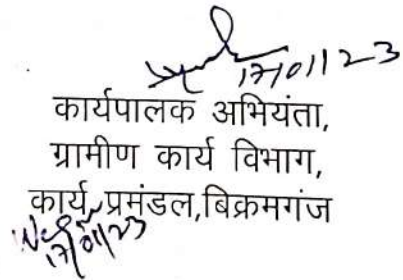 17/01/23
कार्यपालक अभियंता,
ग्रामीण कार्य विभाग,
कार्य प्रमंडल,बिक्रमगंज
17/01/23